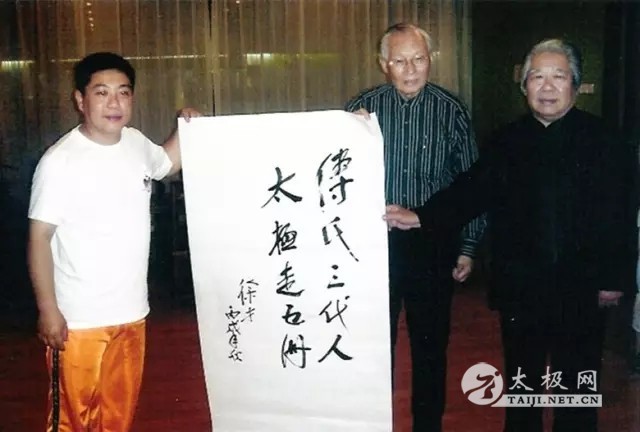 傅氏三代人
太極走五洲
徐才
丙戌
太极网
TAIJI.NET.CN